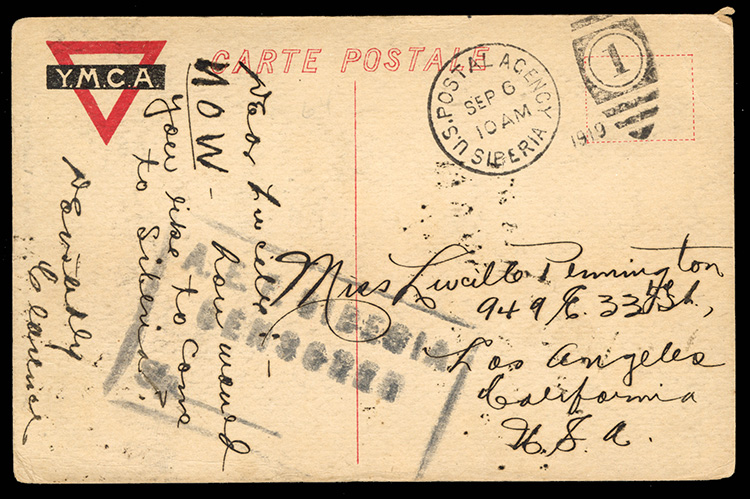 Y.M.C.A
CARTE POSTALE
U.S. POSTAL AGENCY
SIBERIA
SEP 6
10 AM
1919
1
Dear Lucille -
NOW - how would
you like to come
to Siberia?
Devotedly
Clarence
Miss Lucille Pennington
949 E. 33rd St,
Los Angeles
California
U.S.A.
A.E.F. SIBERIA
CENSORED